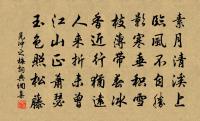 素月清溪上
臨風不自勝
影寒垂積雪
枝薄帶春冰
香近行猶遠
人來折未曾
江山正蕭瑟
玉色照松藤
晁冲之梅詞典網集